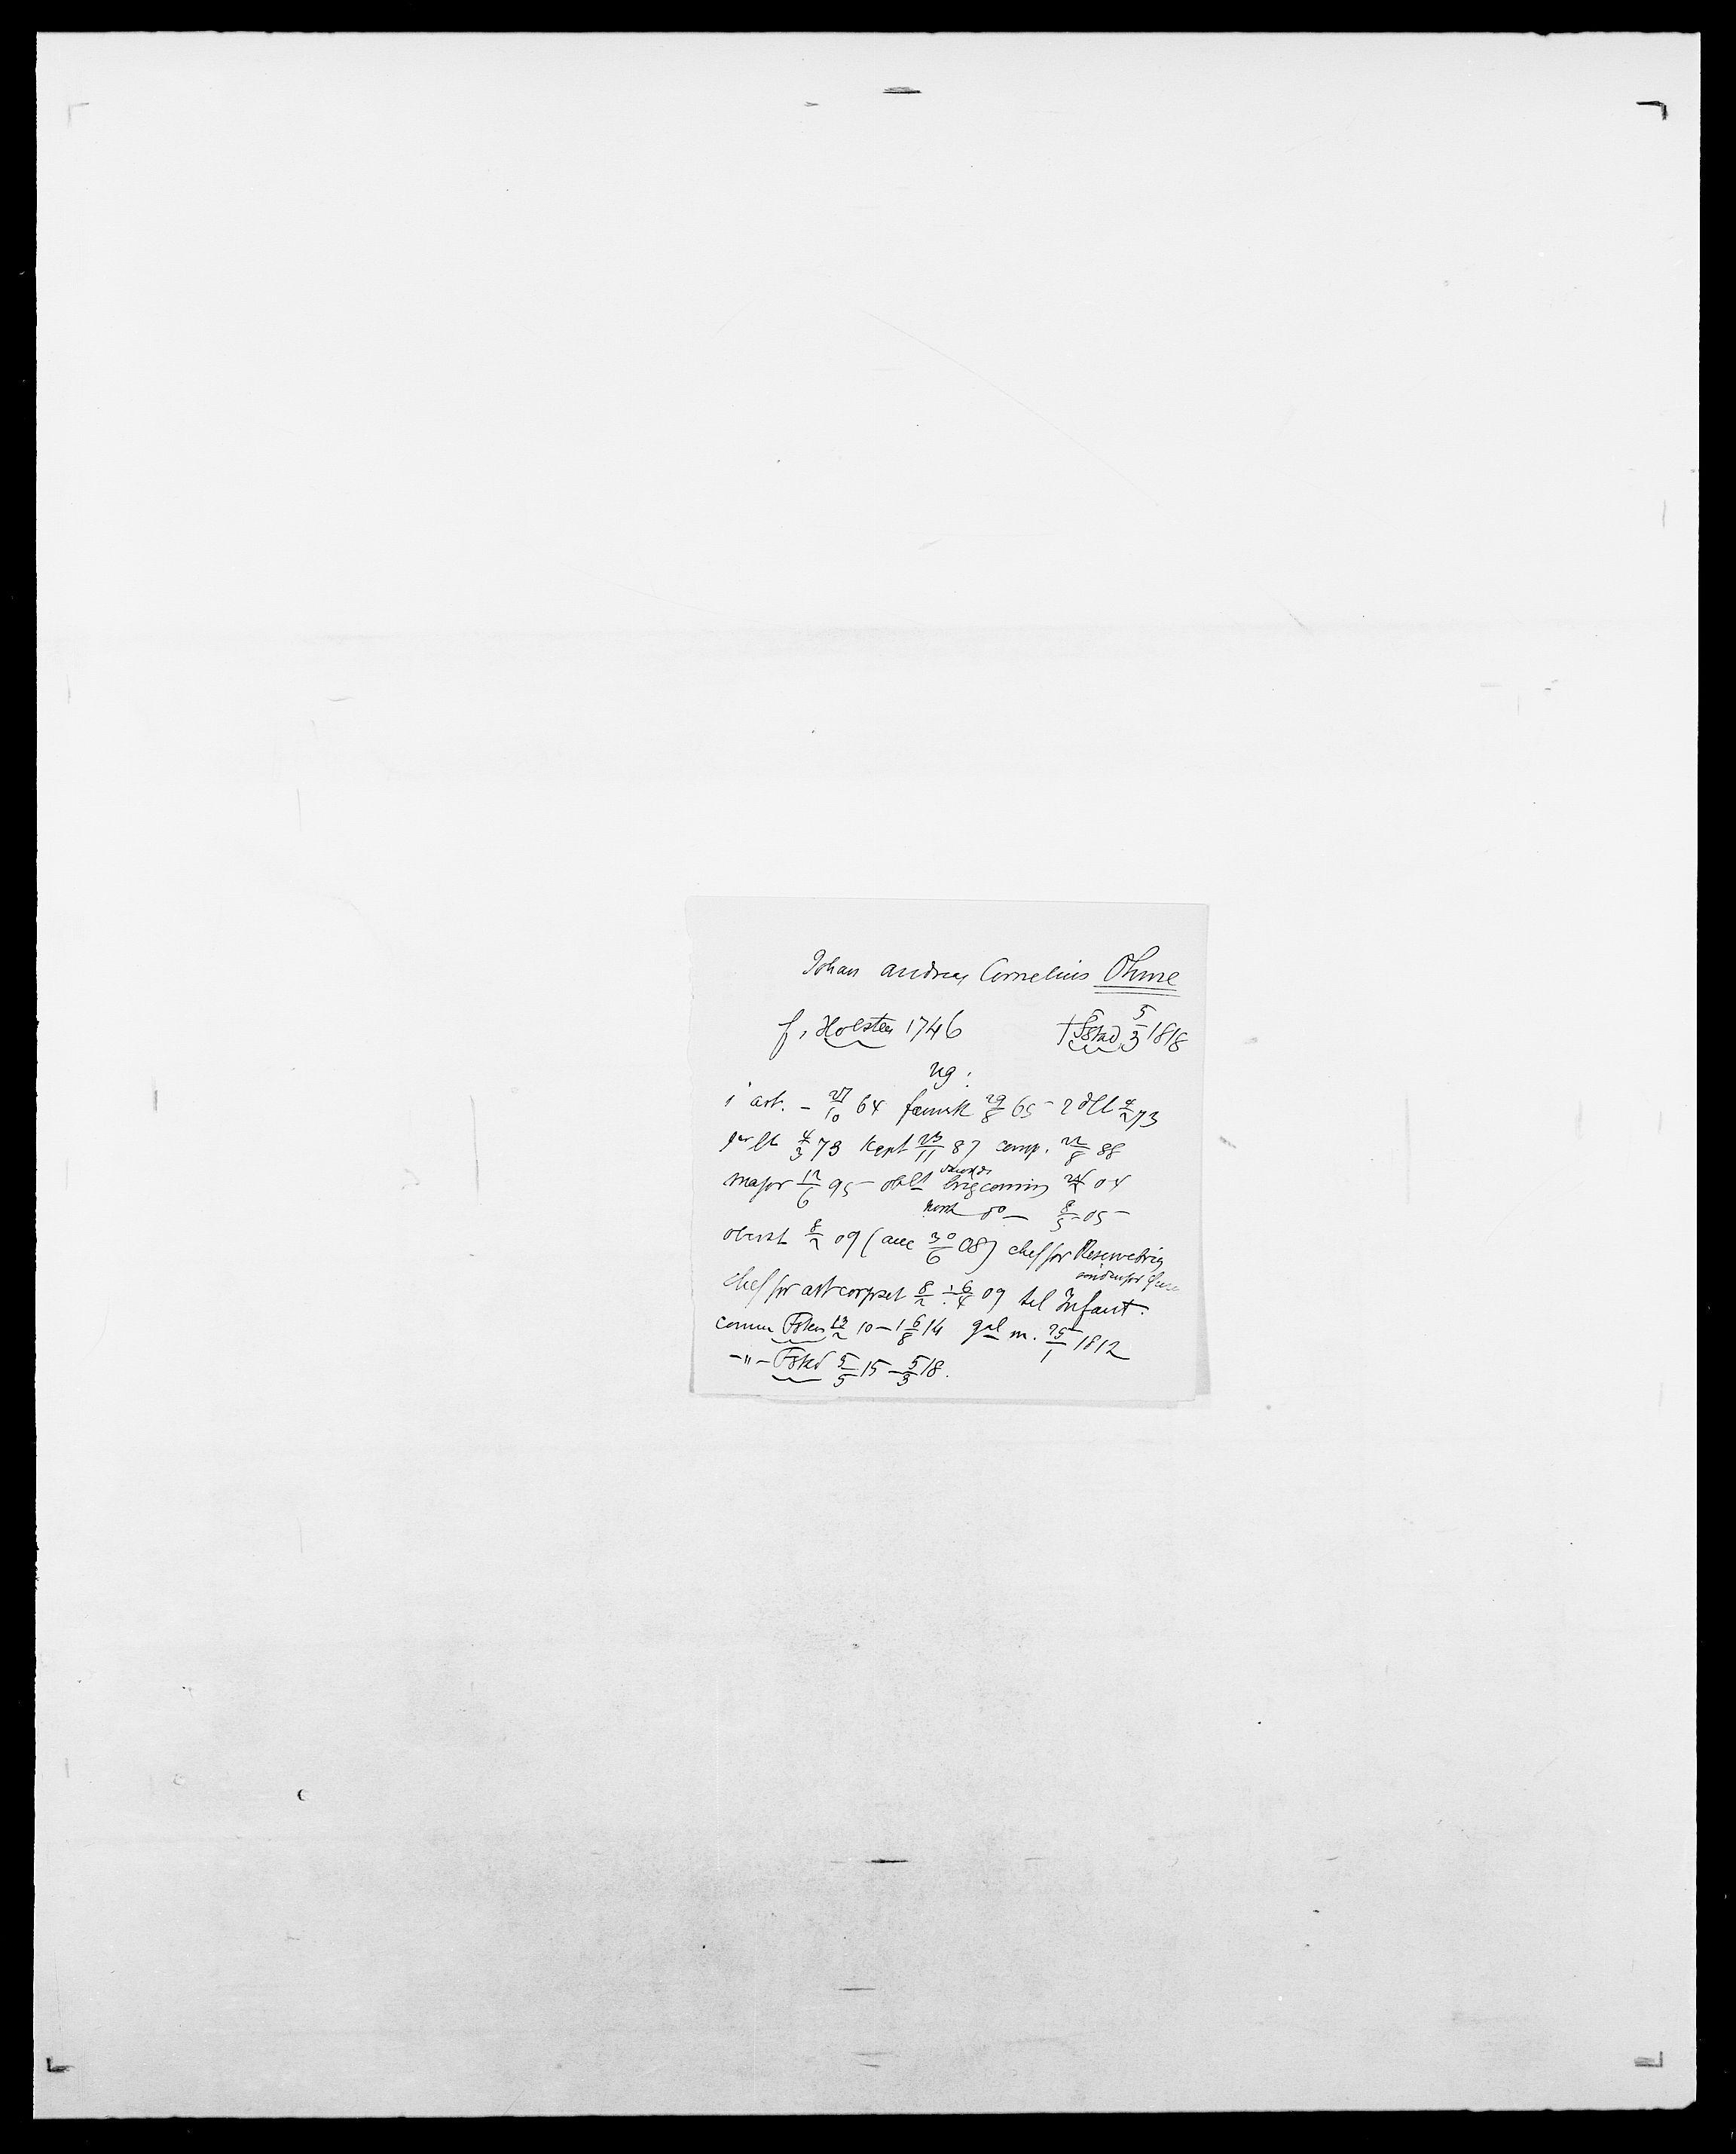 Johan Andreas Cornelius Ohme
f. Holsten 1746 † Fstad 5/3 1818
ug:
i art. - 27/10 64 fænrik 29/8 65 - 2 dlt 4/2 73
pr lt 4/3 73 kapt 23/11 87 comp. 22/8 88
major 12/6 95 - oblt brigcomm 04
norsk do - 8/5 05 -
oberst 8/2 09 (anc 30/6 08) chef for Reservebrig
søndenfor
chef for artcorpset 8/2 ÷ 6/4 09 til Infant.
comm Fsten 13/2 10 - 16/8 14 gal m. 25/1 1812
-"- Fstad 5/5 15 - 5/3 18.